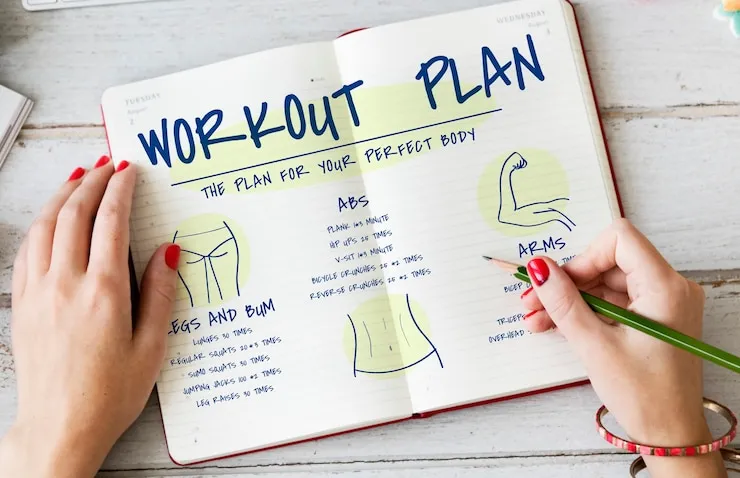 TUESDAY
August
2
WEDNESDAY
August
3
WORKOUT PLAN
THE PLAN FOR YOUR PERFECT BODY
LEGS AND BUM
LUNGES 30 TIMES
REGULAR SQUATS 20 *3 TIMES
SUMO SQUATS 30 TIMES
JUMPING JACKS 100 *2 TIMES
LEG RAISES 30 TIMES
ABS
PLANK 1*3 MINUTE
HIP UPS 25 TIMES
V-SIT 1*3 MINUTE
BICYCLE CRUNCHES 25 *2 TIMES
REVERSE CRUNCHES 25 *2 TIMES
ARMS
BICEP
TRICEPS
OVERHEAD